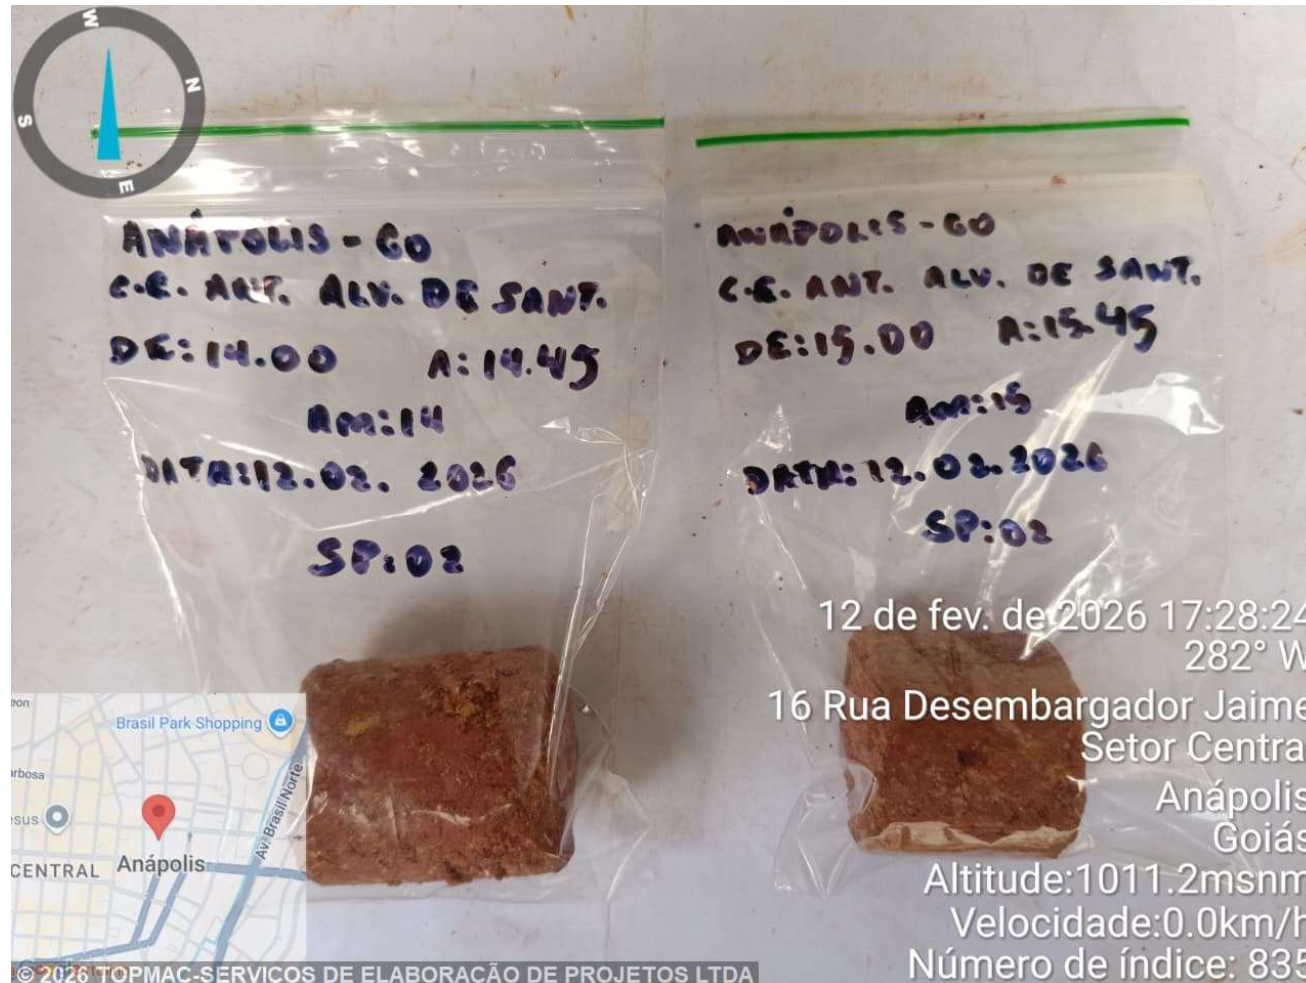 W
N
S
E
ANÁPOLIS - GO
C.E. ANT. ALV. DE SANT.
DE: 14.00 A: 14.45
AM: 14
DATA: 12.02. 2026
SP: 02
ANÁPOLIS - GO
C.E. ANT. ALV. DE SANT.
DE: 15.00 A: 15.45
AM: 15
DATA: 12.02.2026
SP: 02
12 de fev. de 2026 17:28:24
282° W
16 Rua Desembargador Jaime
Setor Central
Anápolis
Goiás
Altitude:1011.2msnm
Velocidade:0.0km/h
Número de índice: 835
Brasil Park Shopping
Av. Brasil Norte
CENTRAL
Anápolis
© 2026 TOPMAC-SERVICOS DE ELABORAÇÃO DE PROJETOS LTDA